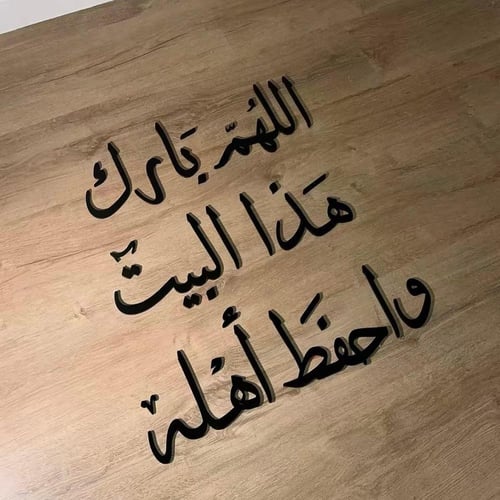 اللهُمّ بَارك
هَذا البيت
واحفَظ أهله